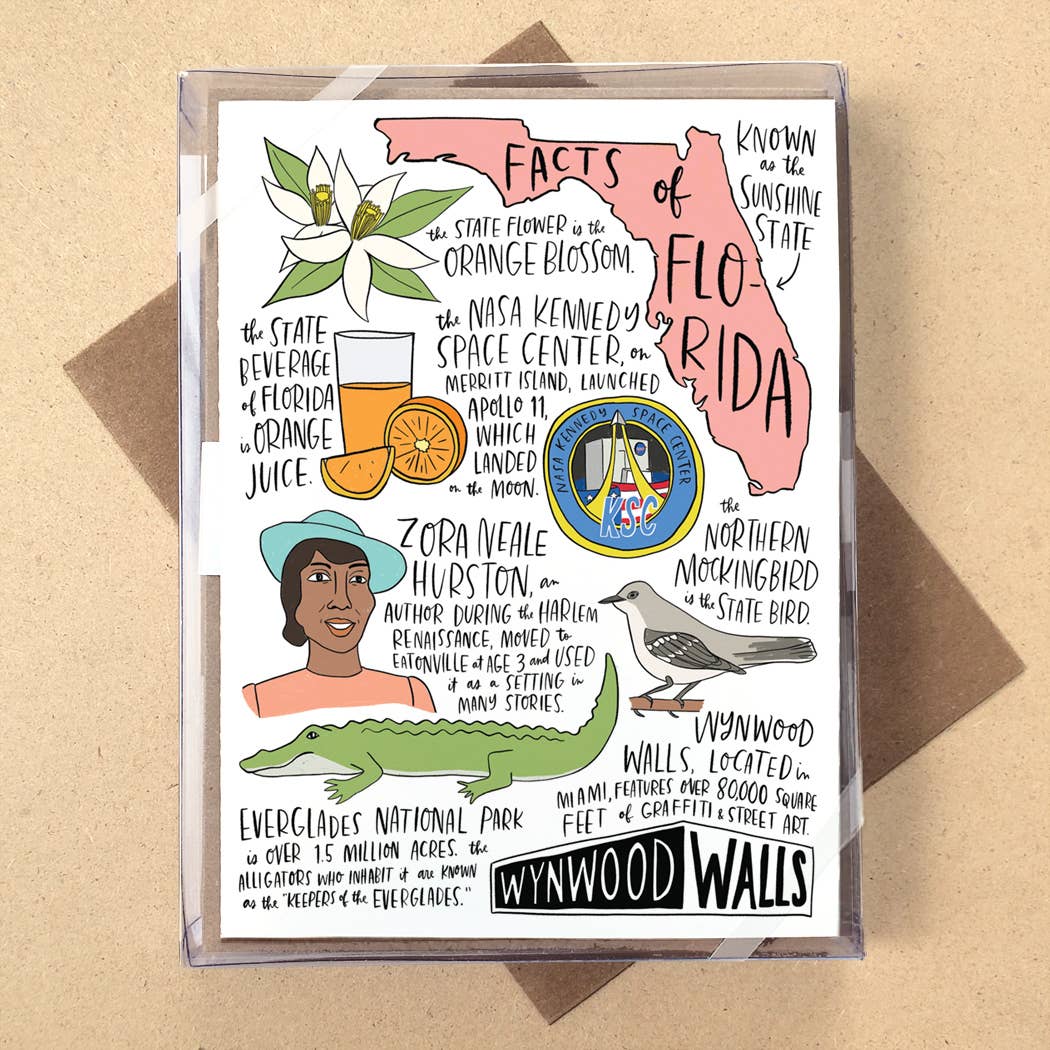 FACTS of
FLO-
RIDA
KNOWN
as the
SUNSHINE
STATE
the STATE FLOWER is the
ORANGE BLOSSOM.
the STATE
BEVERAGE
of FLORIDA
is ORANGE
JUICE.
the NASA KENNEDY
SPACE CENTER, on
MERRITT ISLAND, LAUNCHED
APOLLO 11,
WHICH
LANDED
on the MOON.
NASA KENNEDY SPACE CENTER
KSC
ZORA NEALE
HURSTON, an
AUTHOR DURING the HARLEM
RENAISSANCE, MOVED to
EATONVILLE at AGE 3 and USED
it as a SETTING in
MANY STORIES.
the
NORTHERN
MOCKINGBIRD
is the STATE BIRD.
WYNWOOD
WALLS, LOCATED in
MIAMI, FEATURES OVER 80,000 SQUARE
FEET of GRAFFITI & STREET ART.
EVERGLADES NATIONAL PARK
is OVER 1.5 MILLION ACRES. the
ALLIGATORS WHO INHABIT it are KNOWN
as the "KEEPERS of the EVERGLADES."
WYNWOOD WALLS